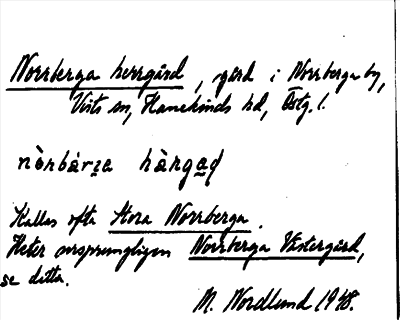 Norrberga herrgård, gård i Norrberga by,
Vists sn, Hanekinds hd, Östg. l.
nòrbàrɪa hàrgaḍ
Kallas ofta Stora Norrberga.
Heter ursprungligen Norrberga Västergård,
se detta.
M. Nordlund 1948.